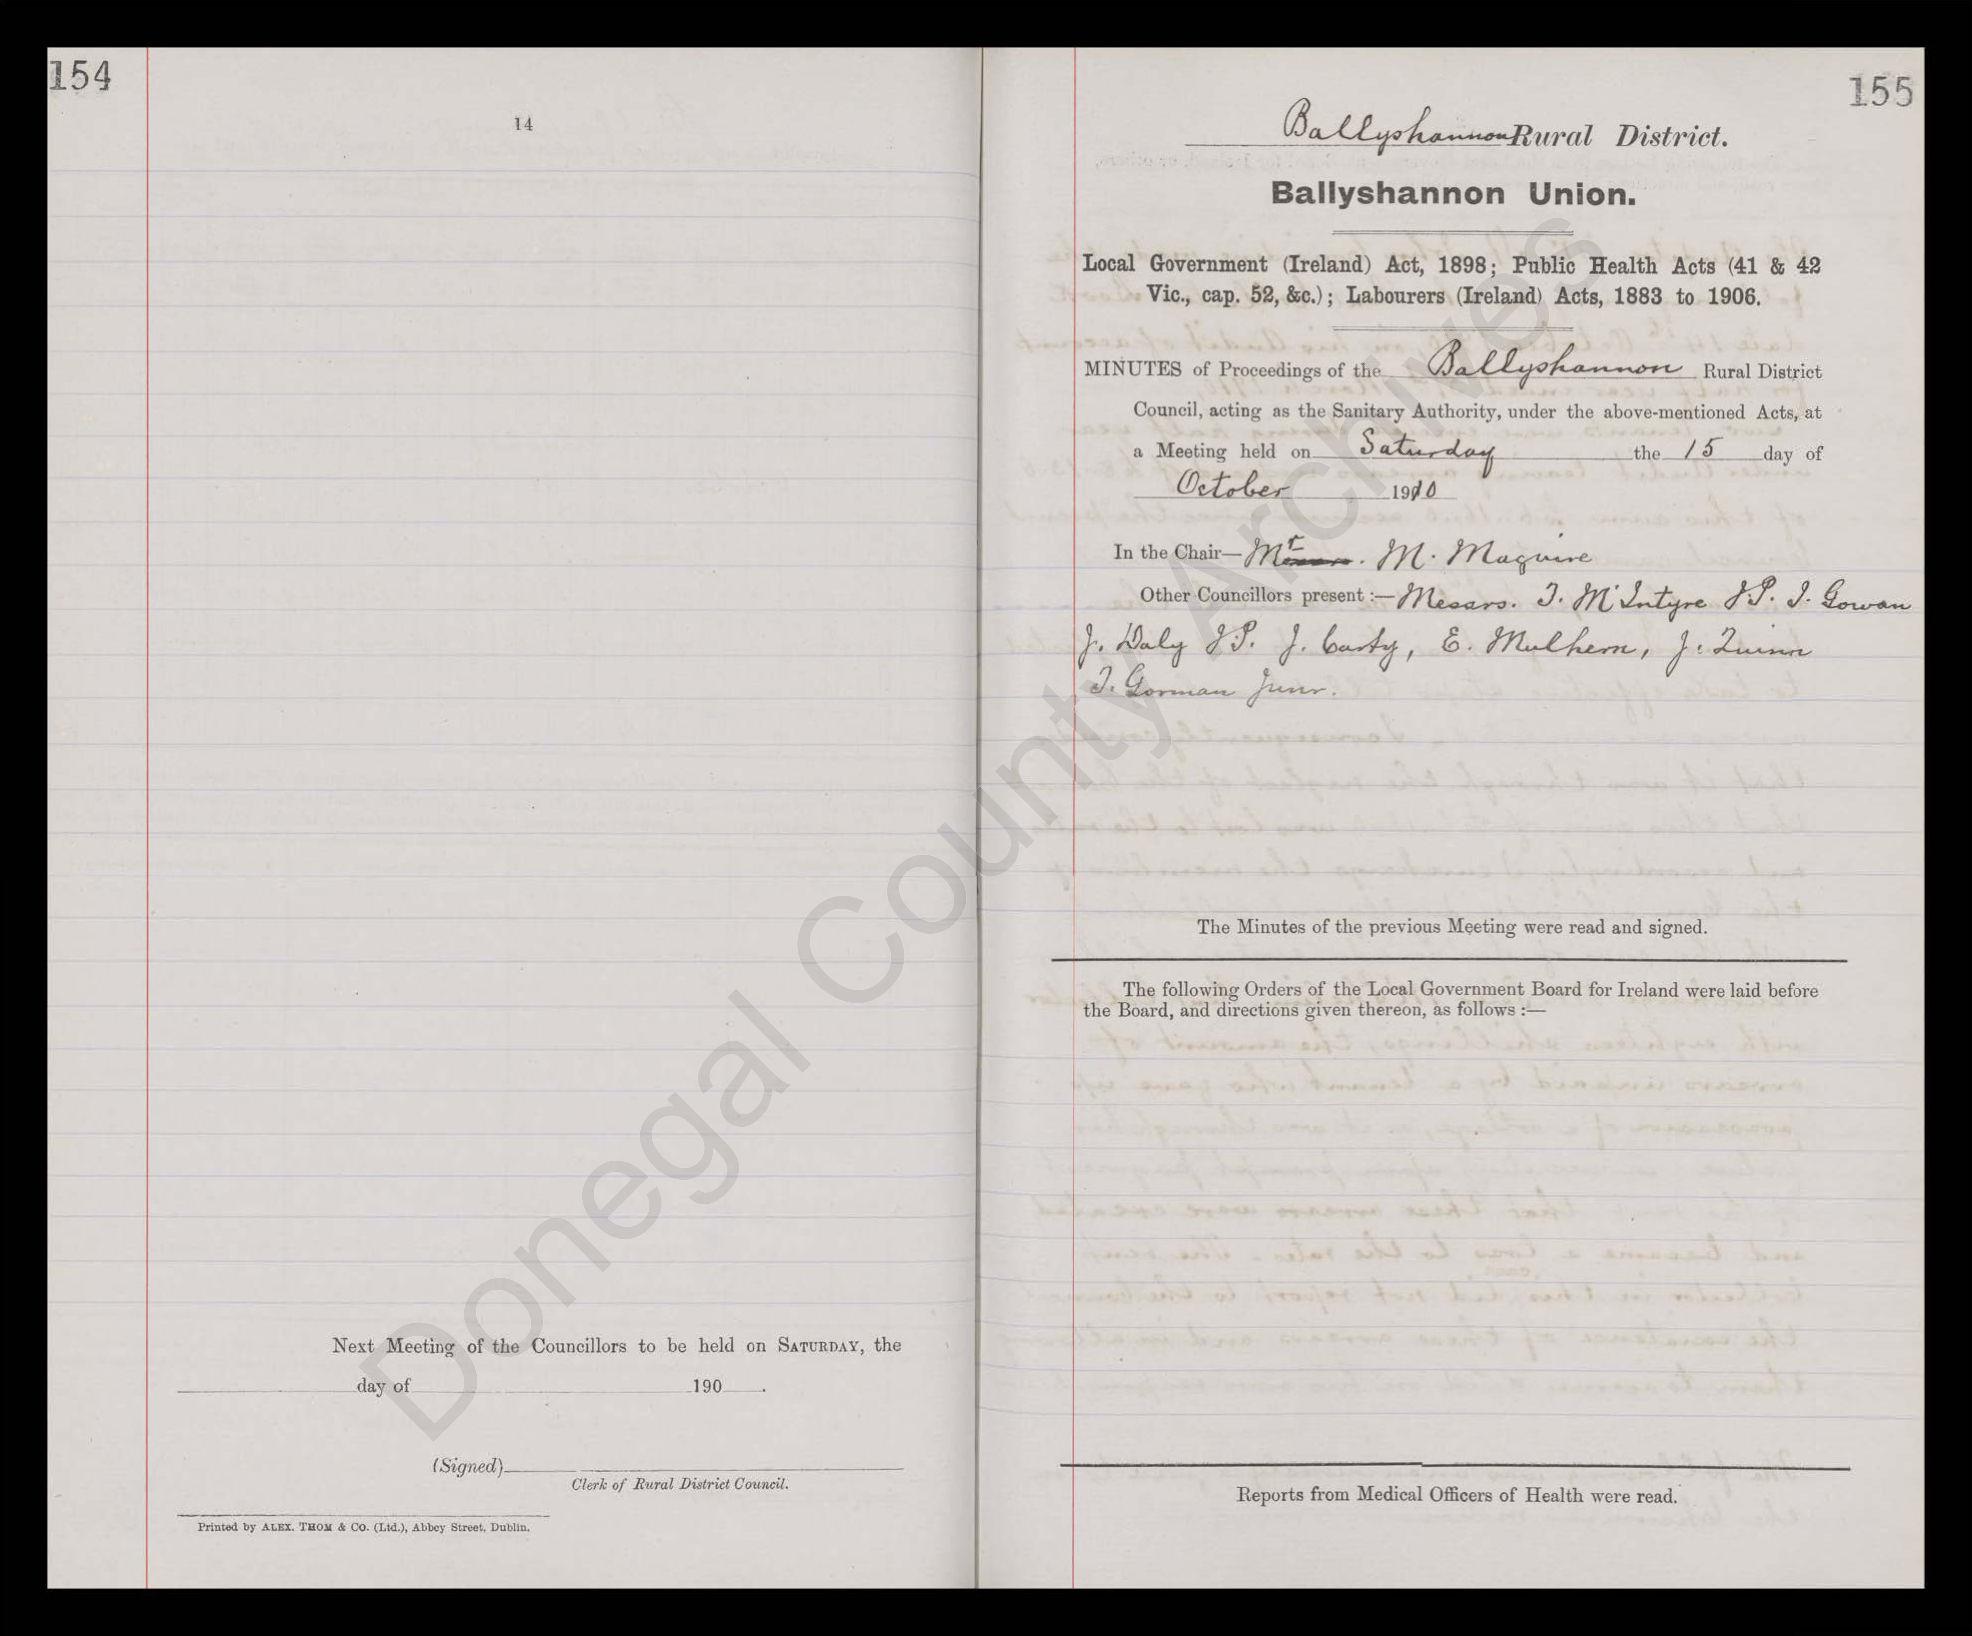 154
14
Next Meeting of the Councillors to be held on SATURDAY, the
day of 190 .
(Signed)
Clerk of Rural District Council.
Printed by ALEX. THOM & CO. (Ltd.), Abbey Street, Dublin.
155
Ballyshannon Rural District.
Ballyshannon Union.
Local Government (Ireland) Act, 1898; Public Health Acts (41 & 42
Vic., cap. 52, &c.); Labourers (Ireland) Acts, 1883 to 1906.
MINUTES of Proceedings of the Ballyshannon Rural District
Council, acting as the Sanitary Authority, under the above-mentioned Acts, at
a Meeting held on Saturday the 15 day of
October 1910
In the Chair— Mr. M. Maguire
Other Councillors present :— Messrs. T. McIntyre J.P. T. Gowan
J. Daly J.P. J. Carty, E. Mulhern, J. Quinn
T. Gorman Junr.
The Minutes of the previous Meeting were read and signed.
The following Orders of the Local Government Board for Ireland were laid before
the Board, and directions given thereon, as follows :—
Reports from Medical Officers of Health were read.
Donegal County Archives